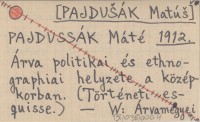 [PAJDUŠÁK Matúš]
PAJDUSSÁK Máté 1912.
Árva politikai és ethno-
graphiai helyzete a közép
korban. (Történeti es-
quisse.) — W: Árvamegyei